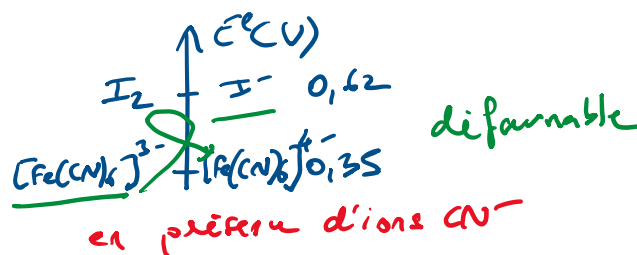 E°(V)
I₂ I⁻ 0,62
défavorable
[Fe(CN)₆]³⁻ [Fe(CN)₆]⁴⁻ 0,35
en présence d'ions CN⁻